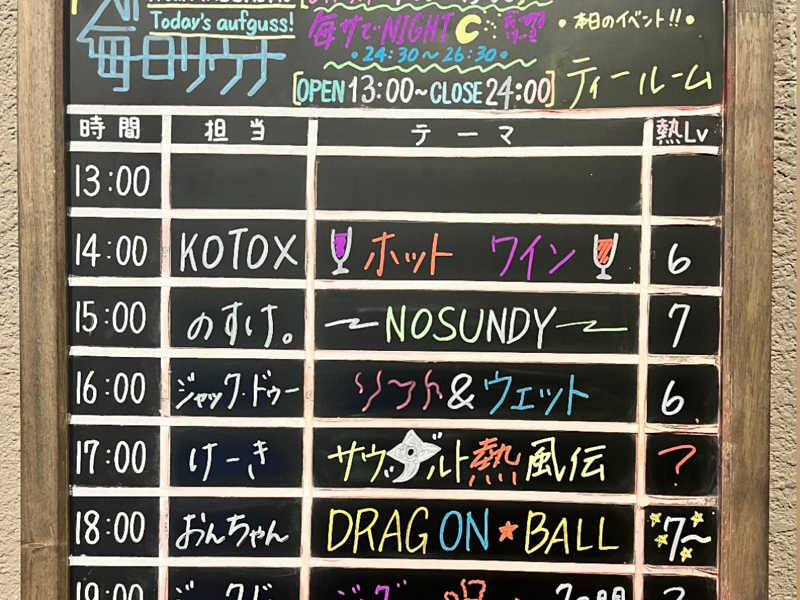 Today's aufguss!
毎日サウナ
毎サでNIGHT
24:30〜26:30
•本日のイベント!!•
[OPEN 13:00〜CLOSE 24:00]
ティールーム
時間 担当 テーマ 熱Lv
13:00
14:00 KOTOX ホット ワイン 6
15:00 のすけ。 NOSUNDY 7
16:00 ジャック・ドゥー ソフト&ウェット 6
17:00 けーき サウダルト熱風伝 ?
18:00 おんちゃん DRAGON★BALL 7〜
19:00